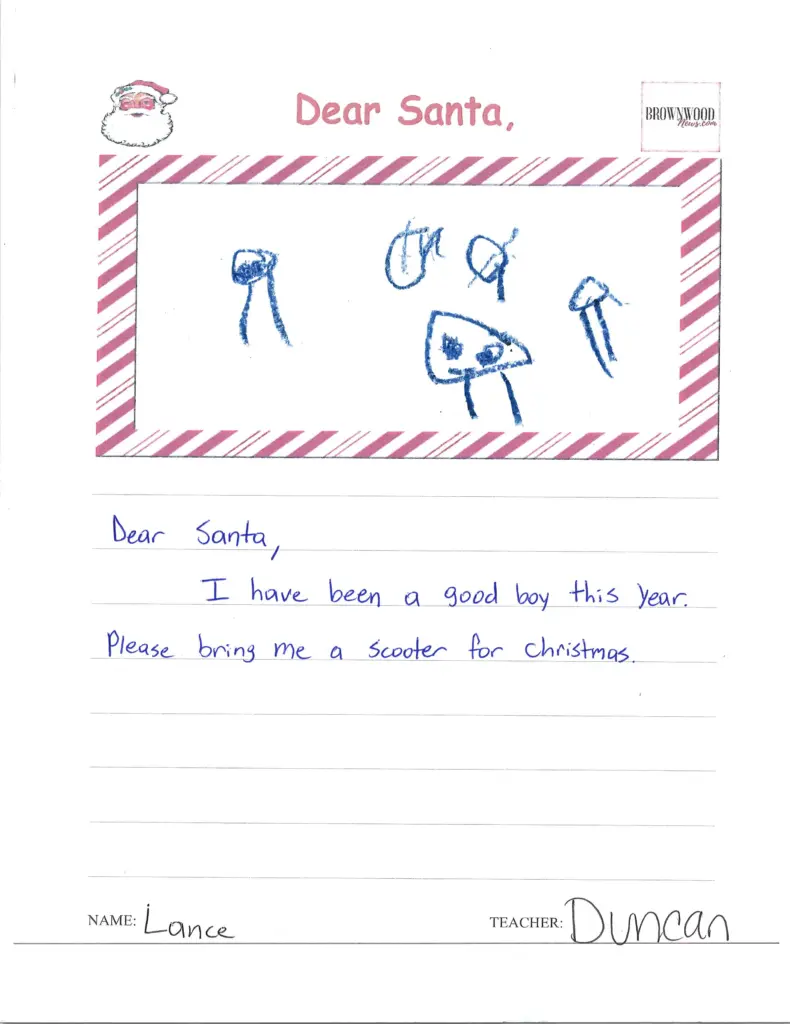 Dear Santa,
BROWNWOOD
News.com
Dear Santa,
I have been a good boy this year.
Please bring me a scooter for christmas.
NAME: Lance
TEACHER: Duncan